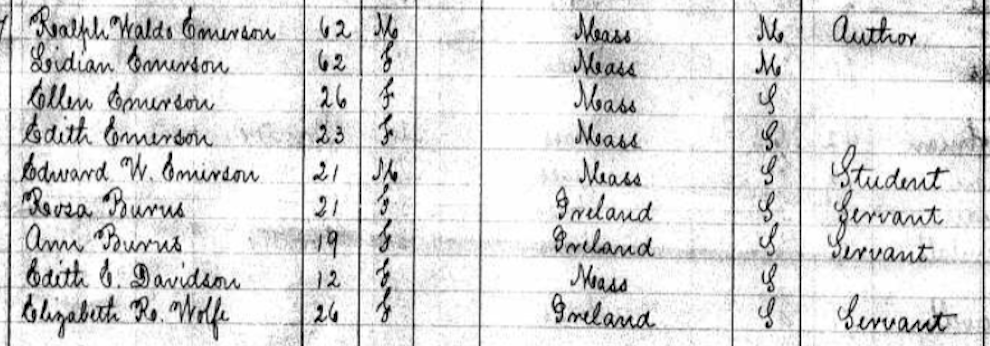 Ralph Waldo Emerson 62 M Mass M Author
Lidian Emerson 62 F Mass M
Ellen Emerson 26 F Mass S
Edith Emerson 23 F Mass S
Edward W. Emerson 21 M Mass S Student
Rosa Burns 21 F Ireland S Servant
Ann Burns 19 F Ireland S Servant
Edith E. Davidson 12 F Mass S
Elizabeth R. Wolfe 26 F Ireland S Servant